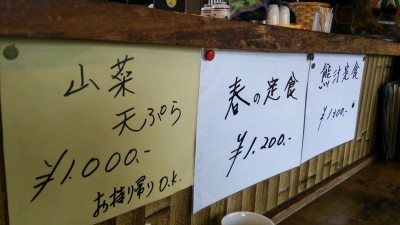 山菜
天ぷら
¥1.000.-
お持り帰りO.K.
春の定食
¥1.200.-
熊汁定食
¥1300.-